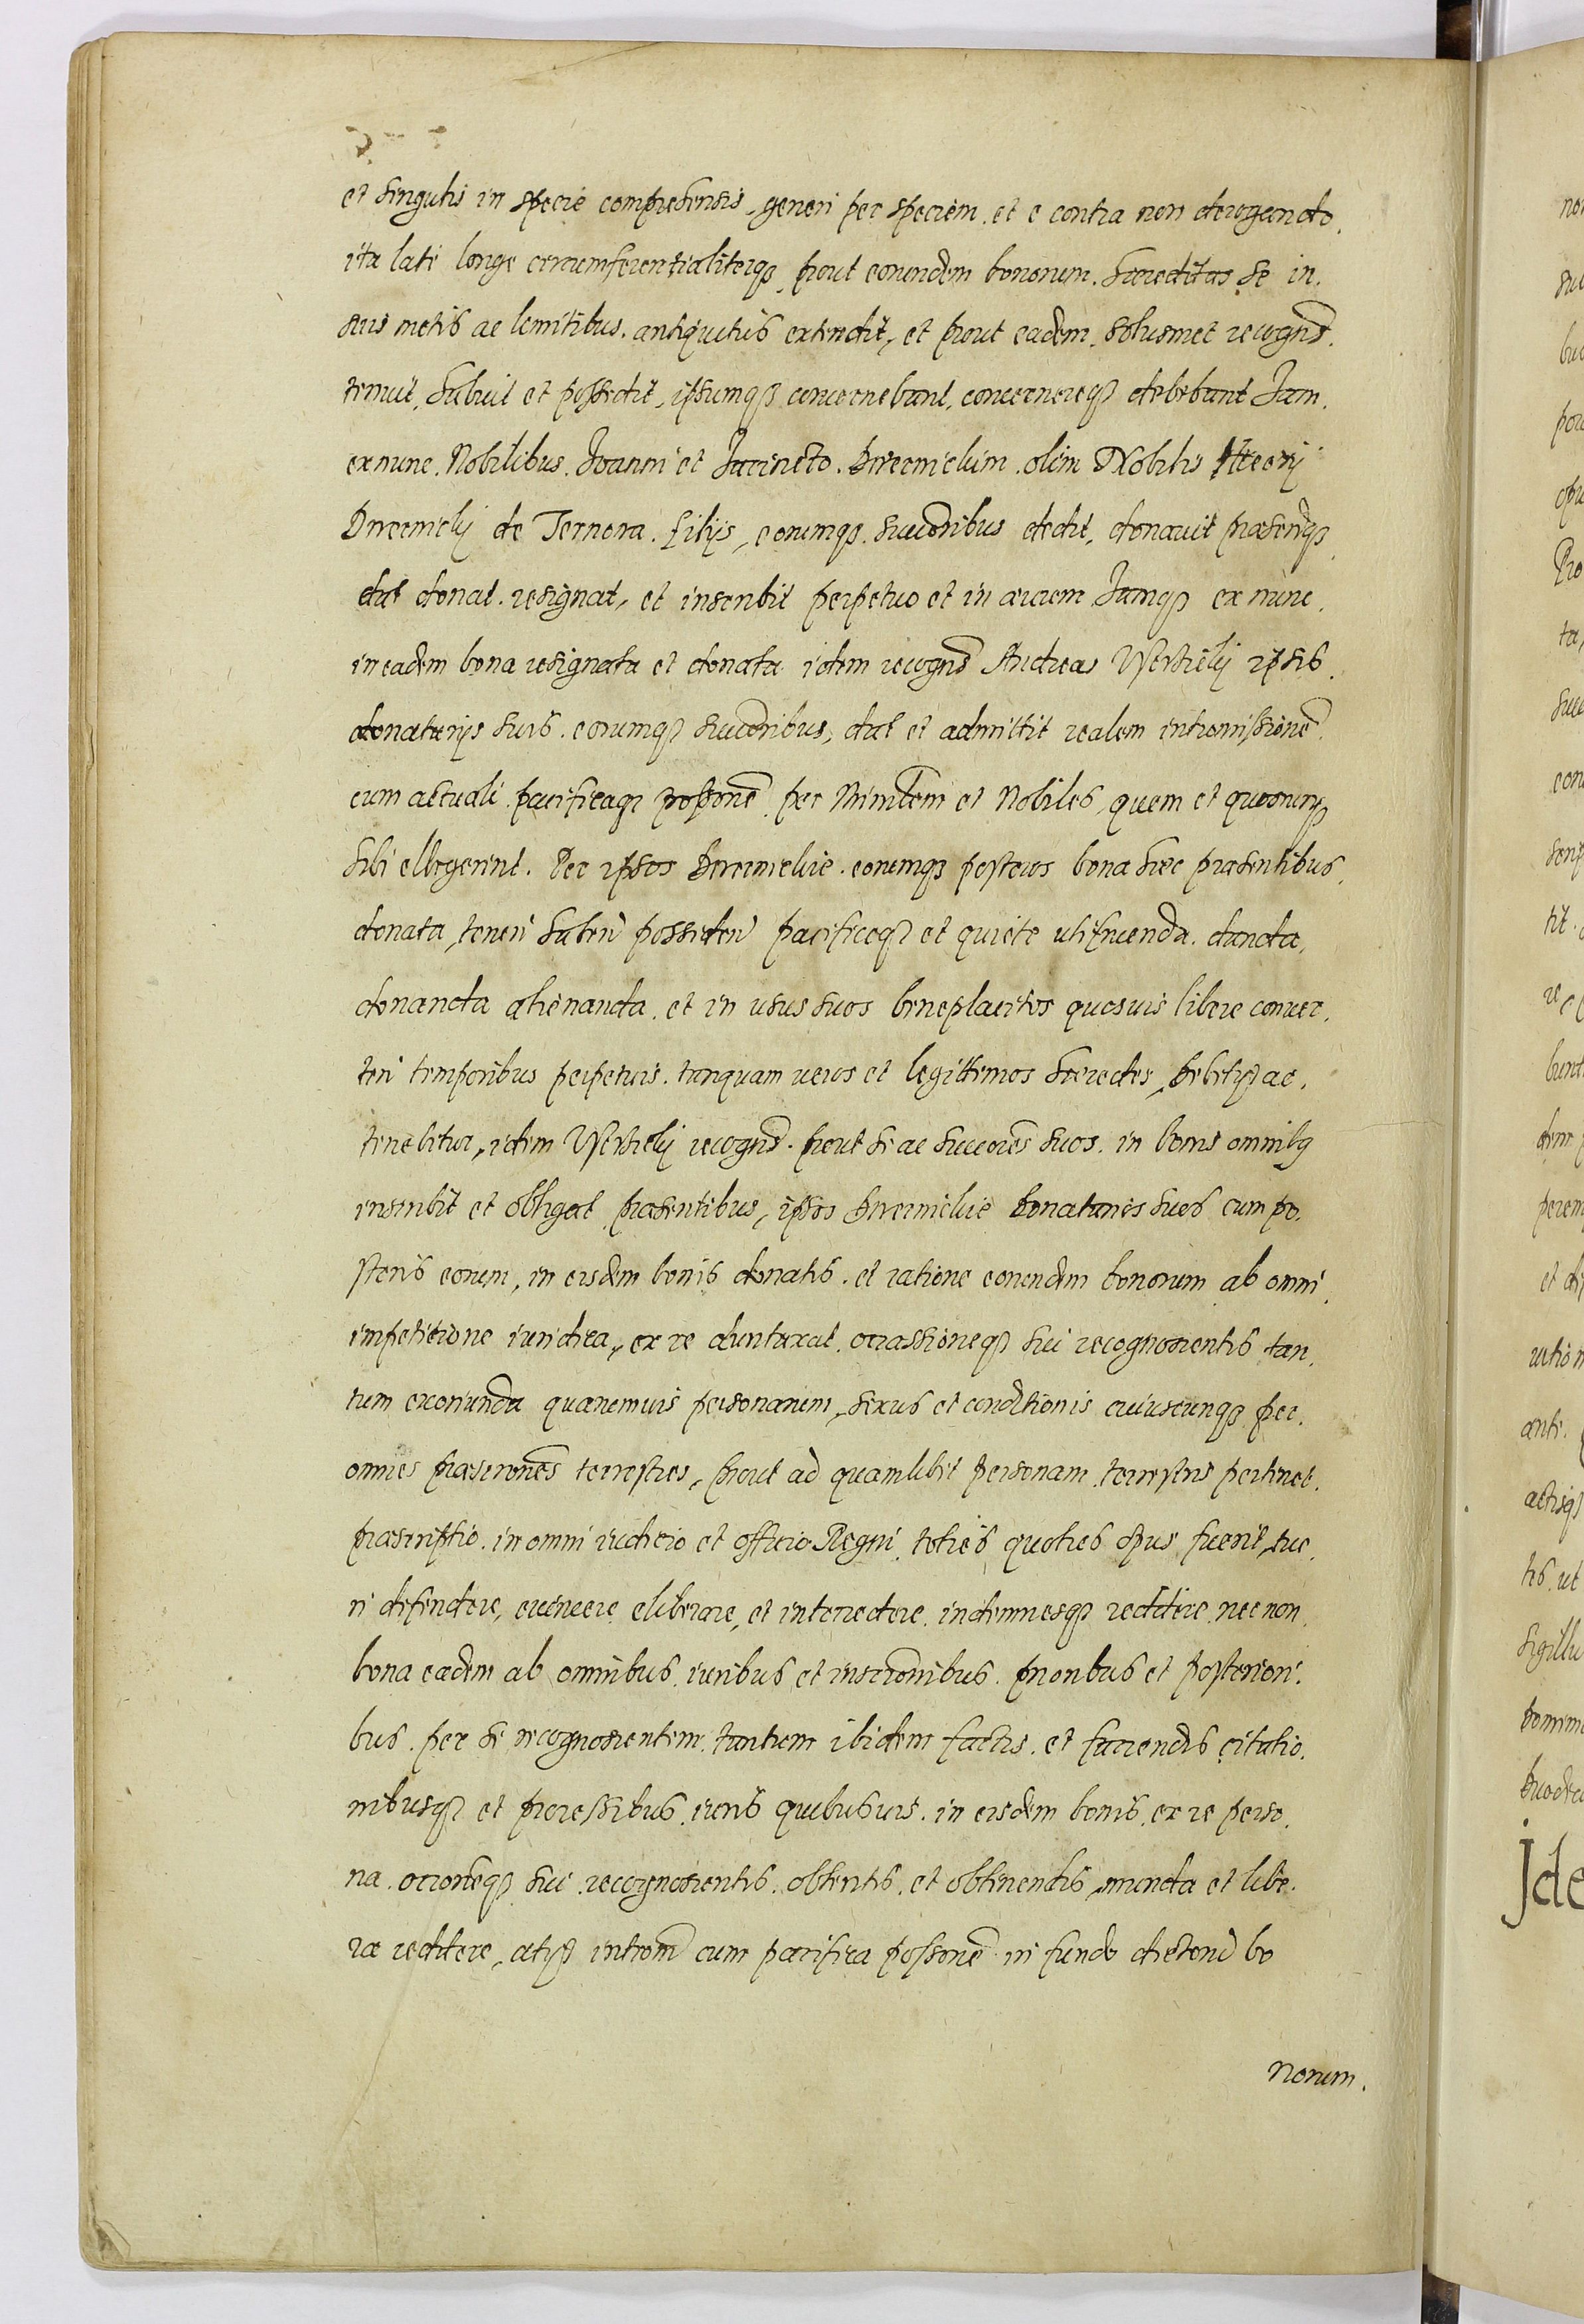 et singulis in specie comprehensis, generi per speciem et e contra non derogando,
ita late longe circumferentialiterq3 prout eorundem bonorum haereditas se in
suis metis ac limitibus antiquitus extendit, et prout eadem solusmet recogns
tenuit, habuit et possedit, ipsumq3 concernebant, concernereq3 debebant Jam
ex nunc Nobilibus Joanni et Jacincto olim Nobilis
de Ternora filijs, eorumq3 succoribus dedit, donavit praesentiq3
dat donat resignat, et inscribit perpetuo et in aevum Jamq3 ex nunc
in eadem bona resignata et donata idem recogns Andreas ipsis
donatarijs suis eorumq3 succoribus, dat et admittit realem intromissione
cum actuali pacificaq3 possone per Mindem et Nobiles quem et quorunq3
sibi ellegerint. Per ipsos eorumq3 posteros bona haec praesentibus
donata, teneri haberi possideri pacificeq3 et quiete utifruenda danda
donanda alienanda et in usus suos beneplacitos quosuis libere conver
teri temporibus perpetuis tanquam veros et legittimos haeredes, debebitq3 ac
tenebitur, idem recogns prout se ac succores suos in bonis omnibq
inscribit et obligat praesentibus, ipsos Donatarios suos cum po
steris eorum, in eisdem bonis donatis et ratione eorundem bonorum ab omni
impetitione iuridica, ex re duntaxat occassioneq3 sui recognoscentis tan
tum exoriunda quarumuis personarum, sexus et conditionis cuiuscunq3 per
omnes praescrones terrestres, prout ad quamlibet personam terrestris pertinet
praescriptio in omni iudicio et officio Regni toties quoties opus fuerit, tue
ri defendere, evincere eliberare, et intercedere indemnesq3 reddere nec non
bona eadem ab omnibus iuribus et inscronibus prioribus et posteriori
bus per se recognoscentem tantum ibidem factis et faciendis citatio
nibusq3 et processibus iuris quibusuis in eisdem bonis ex re perso
na occoneq3 sui recognoscentis obtentis et obtinendis, munda et libe
ra reddere, atq3 introm cum pacifica possone in fundo dictoru bo
norum.